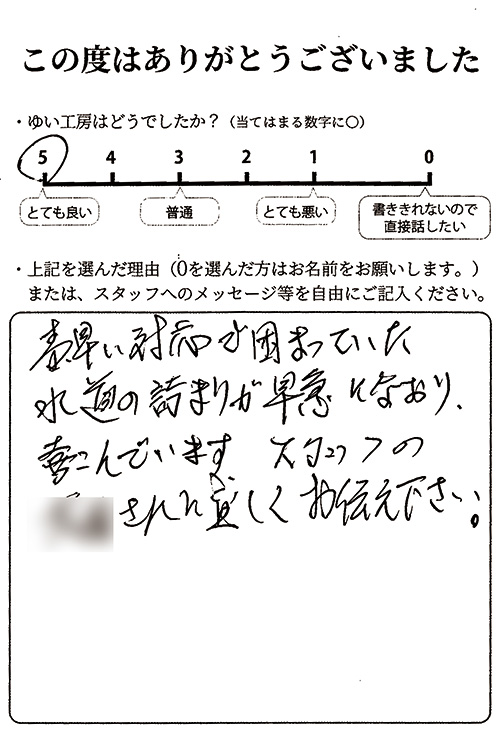 この度はありがとうございました
・ゆい工房はどうでしたか？（当てはまる数字に○）
5 4 3 2 1 0
とても良い 普通 とても悪い 書ききれないので
直接話したい
・上記を選んだ理由（0を選んだ方はお名前をお願いします。）
または、スタッフへのメッセージ等を自由にご記入ください。
素早い対応で困っていた
水道の詰まりが早急になおり、
喜こんでいます スタッフの
さんに宜しくお伝え下さい。